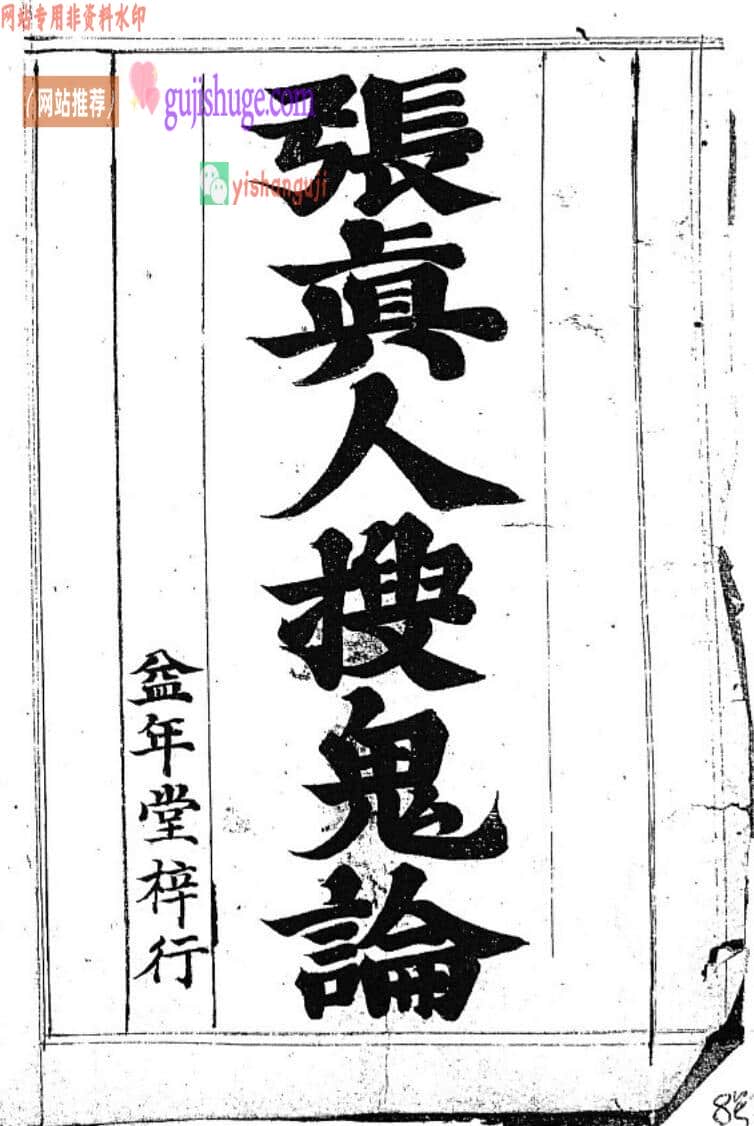 网站专用非资料水印
(网站推荐)
gujishuge.com
yishanguji
張眞人搜鬼論
益年堂梓行